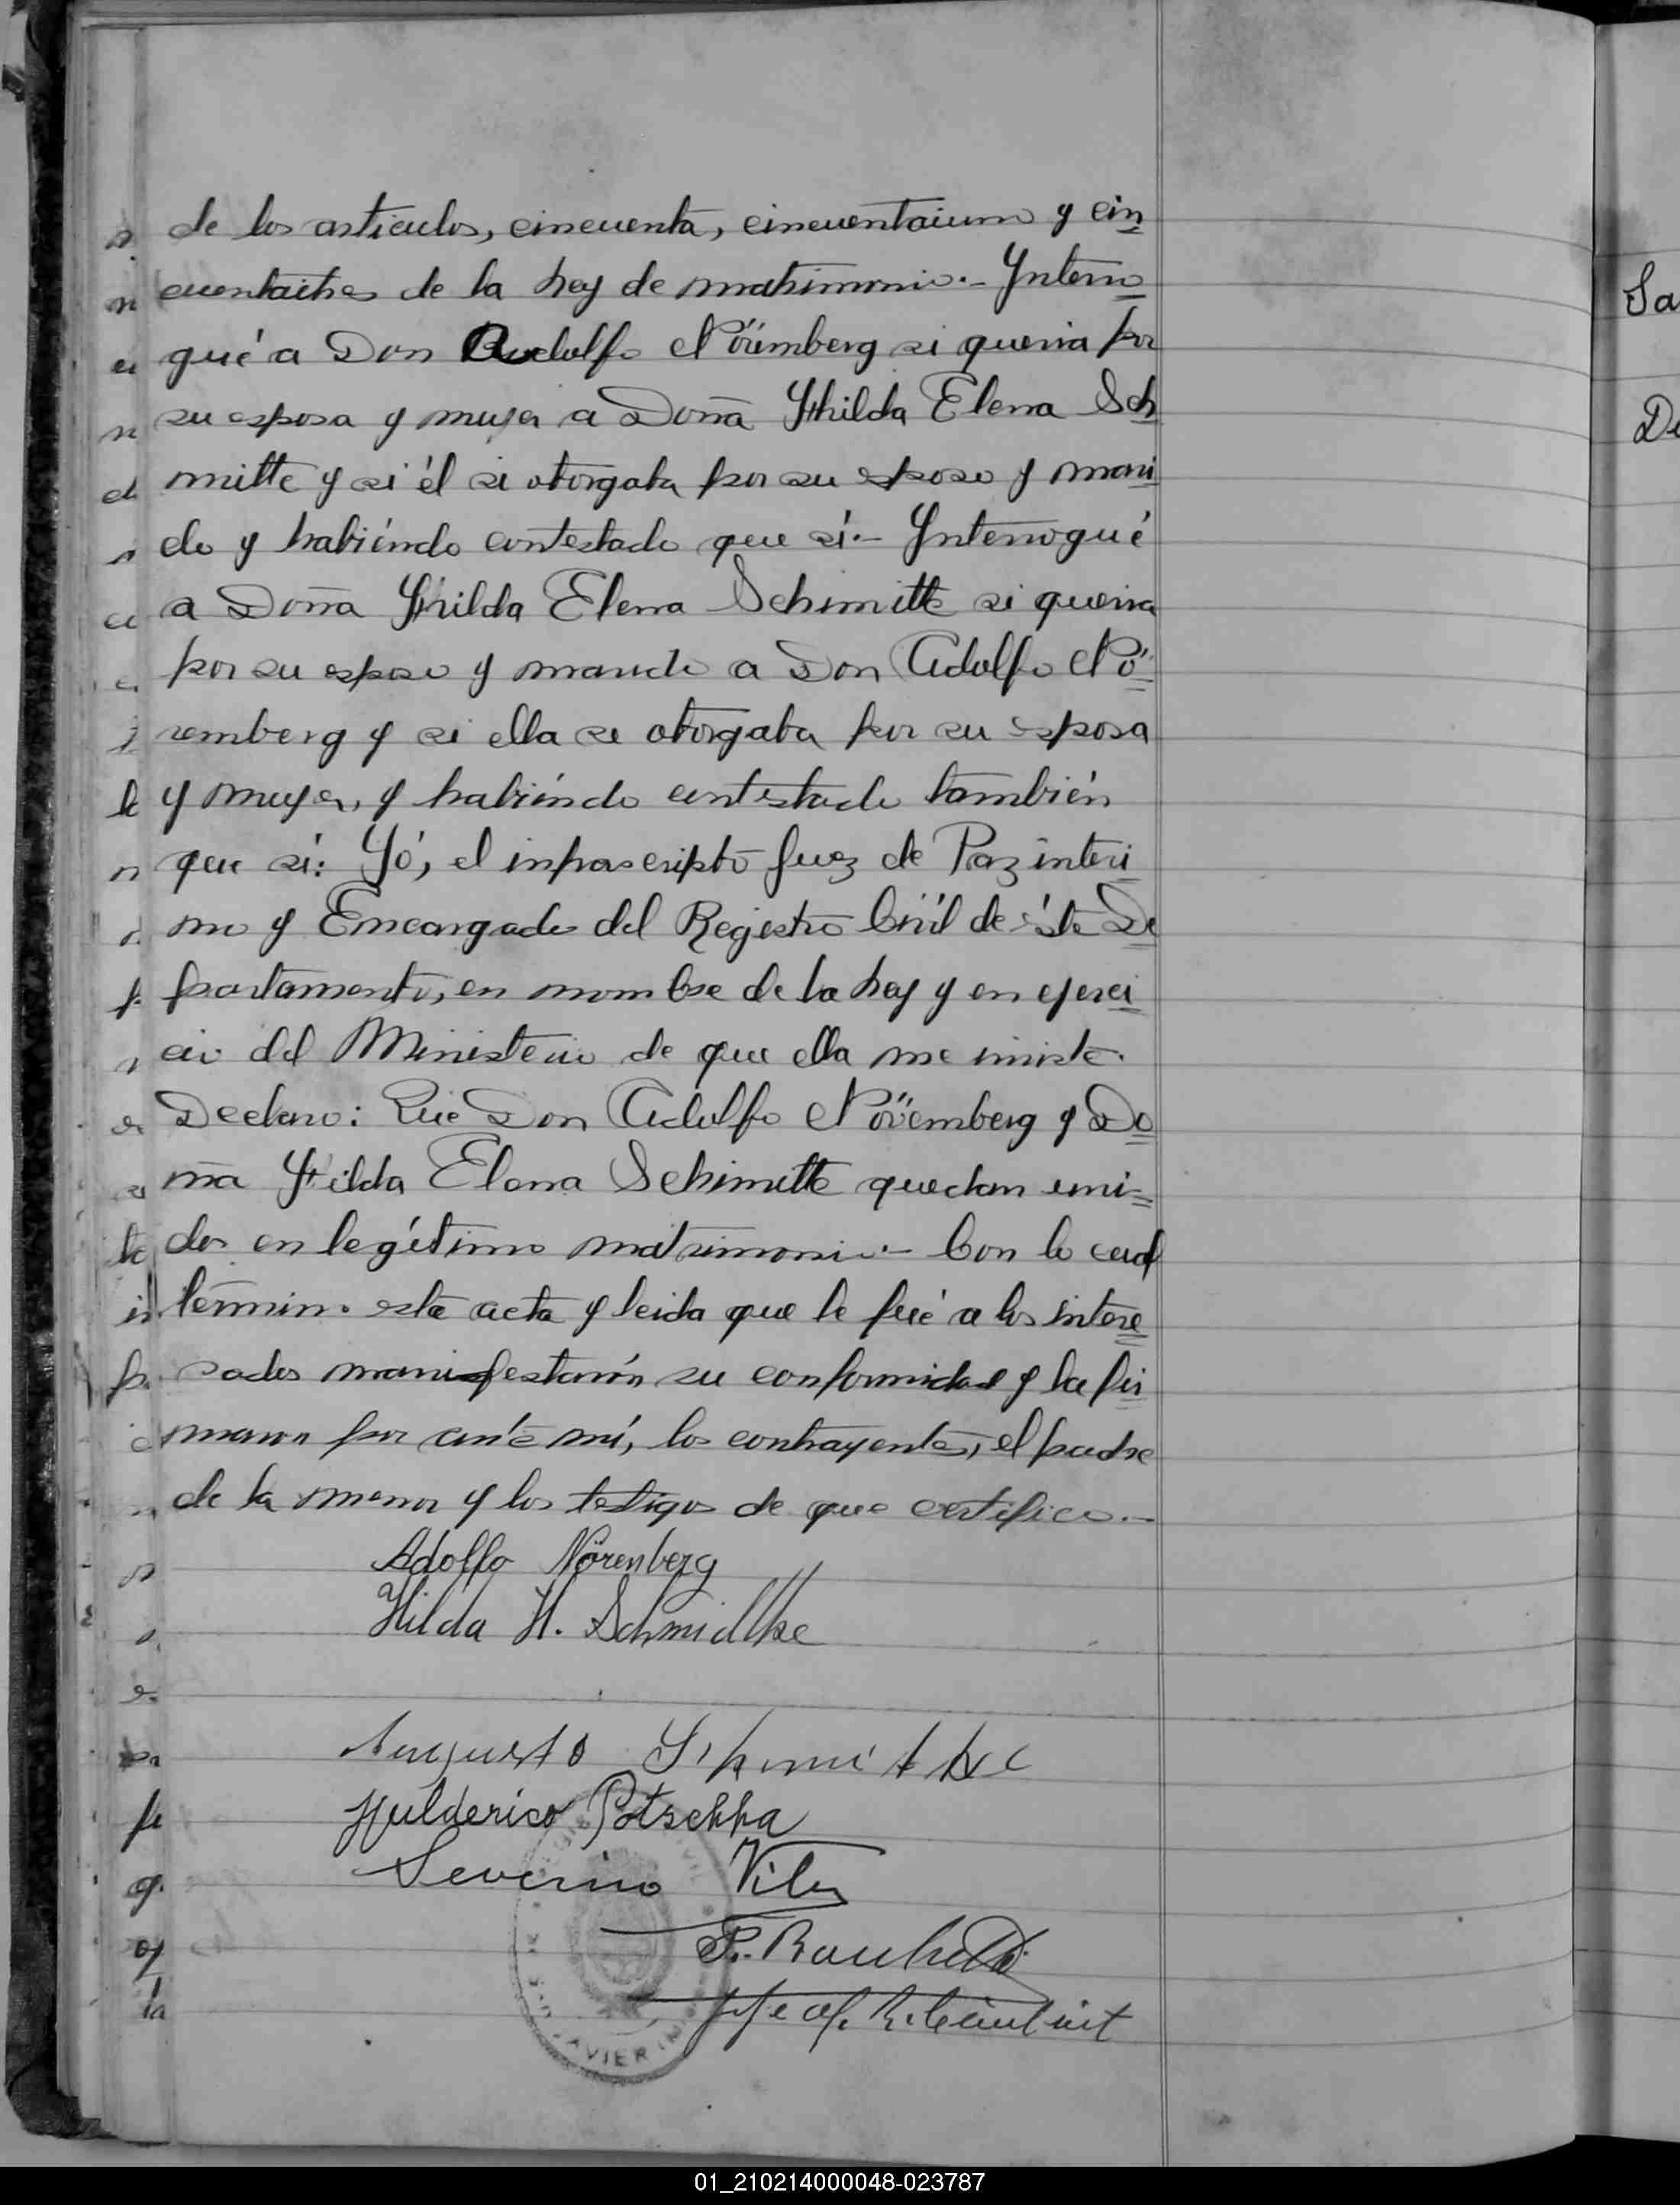 de los artículos, cincuenta, cincuentaiuno y cin
cuentaitres de la Ley de matrimonio.- Ynterro
gué a Don Rudolfo Nöremberg si queria por
su esposa y mujer a Doña Hhilda Elena Sch
mitte y si él se otorgaba por su esposo y mari
do y habiéndo contestado que sí.- Ynterrogué
a Doña Hhilda Elena Schimitte si queria
por su esposo y marido a Don Adolfo Nö
remberg y si ella se otorgaba por su esposa
y mujer, y habiéndo contestado también
que sí: Yó, el infrascripto Juez de Paz interi
no y Encargado del Registro Civil de éste De
partamento, en nombre de la Ley y en ejerci
cio del Ministerio de que ella me inviste.
Declaro: Que Don Adolfo Nöremberg y Do
ña Hilda Elena Schimitte quedan uni-
dos en legítimo matrimonio.- Con lo cual
termino esta acta y leida que le fué a los intere
sados manifestarón su conformidad y la fir
maron por ante mí, los contrayentes, el padre
de la menor y los testigos de que certifico.-
Adolfo Nörenberg
Hilda H. Schmidtke
Augusto Schmidtke
Hulderico Potschka
Severino
Jefe of. R. Civil int
AVIER
Sa
De
01_210214000048-023787